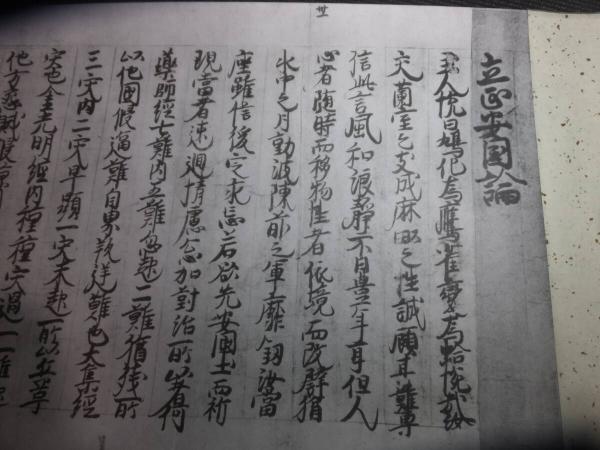 廿
立正安国論
主人悦曰鳩化為鷹雀變為蛤悦哉汝
交蘭室之友成麻畝之性誠顧其難專
信此言風和浪静不日豊年耳但人
心者随時而移物性者依境而改譬猶
水中之月動波陳前之軍靡釼汝當
座雖信後定永忘若欲先安國土而祈
現當者速迴情慮忩加對治所以者何
藥師經七難内五難忽起二難猶殘所
以他國侵逼難自界叛逆難也大集經
三灾内二灾早顕一灾未起所以兵革
灾也金光明經内種種灾過一一雖起
他方怨賊侵